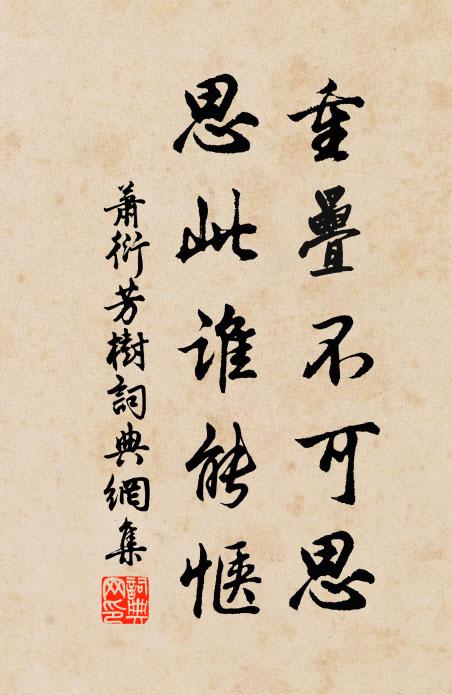 重疊不可思
思此誰能惬
萧衍芳樹詞典網集
詞典网印